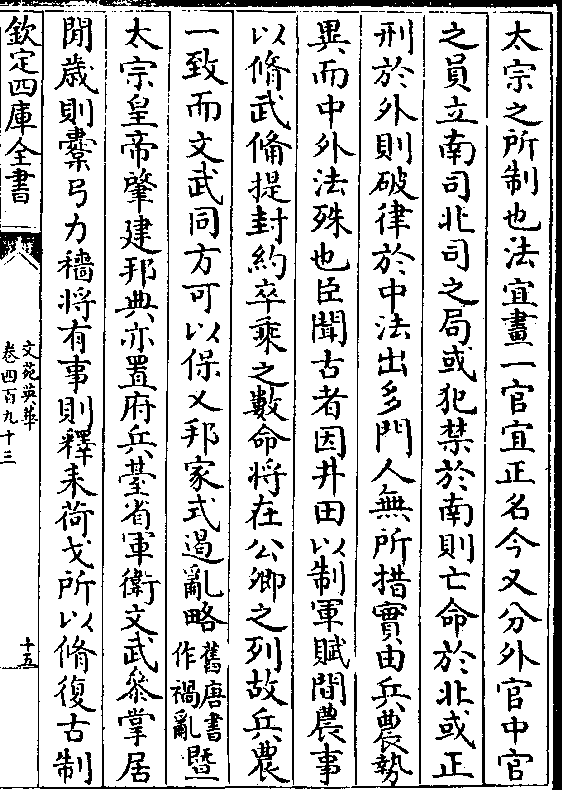 太宗之所制也法宜畫一官宜正名今又分外官中官
之員立南司北司之局或犯禁於南則亡命於北或正
刑於外則破律於中法出多門人無所措實由兵農勢
異而中外法殊也臣聞古者因井田以制軍賦間農事
以脩武備提封約卒乘之數命將在公卿之列故兵農
一致而文武同方可以保乂邦家式遏亂略舊唐書作禍亂暨
太宗皇帝肇建邦典亦置府兵臺省軍衛文武叅掌居
閒歲則櫜弓力穡將有事則釋耒荷戈所以脩復古制
欽定四庫全書
文苑英華
卷四百九十三
十五